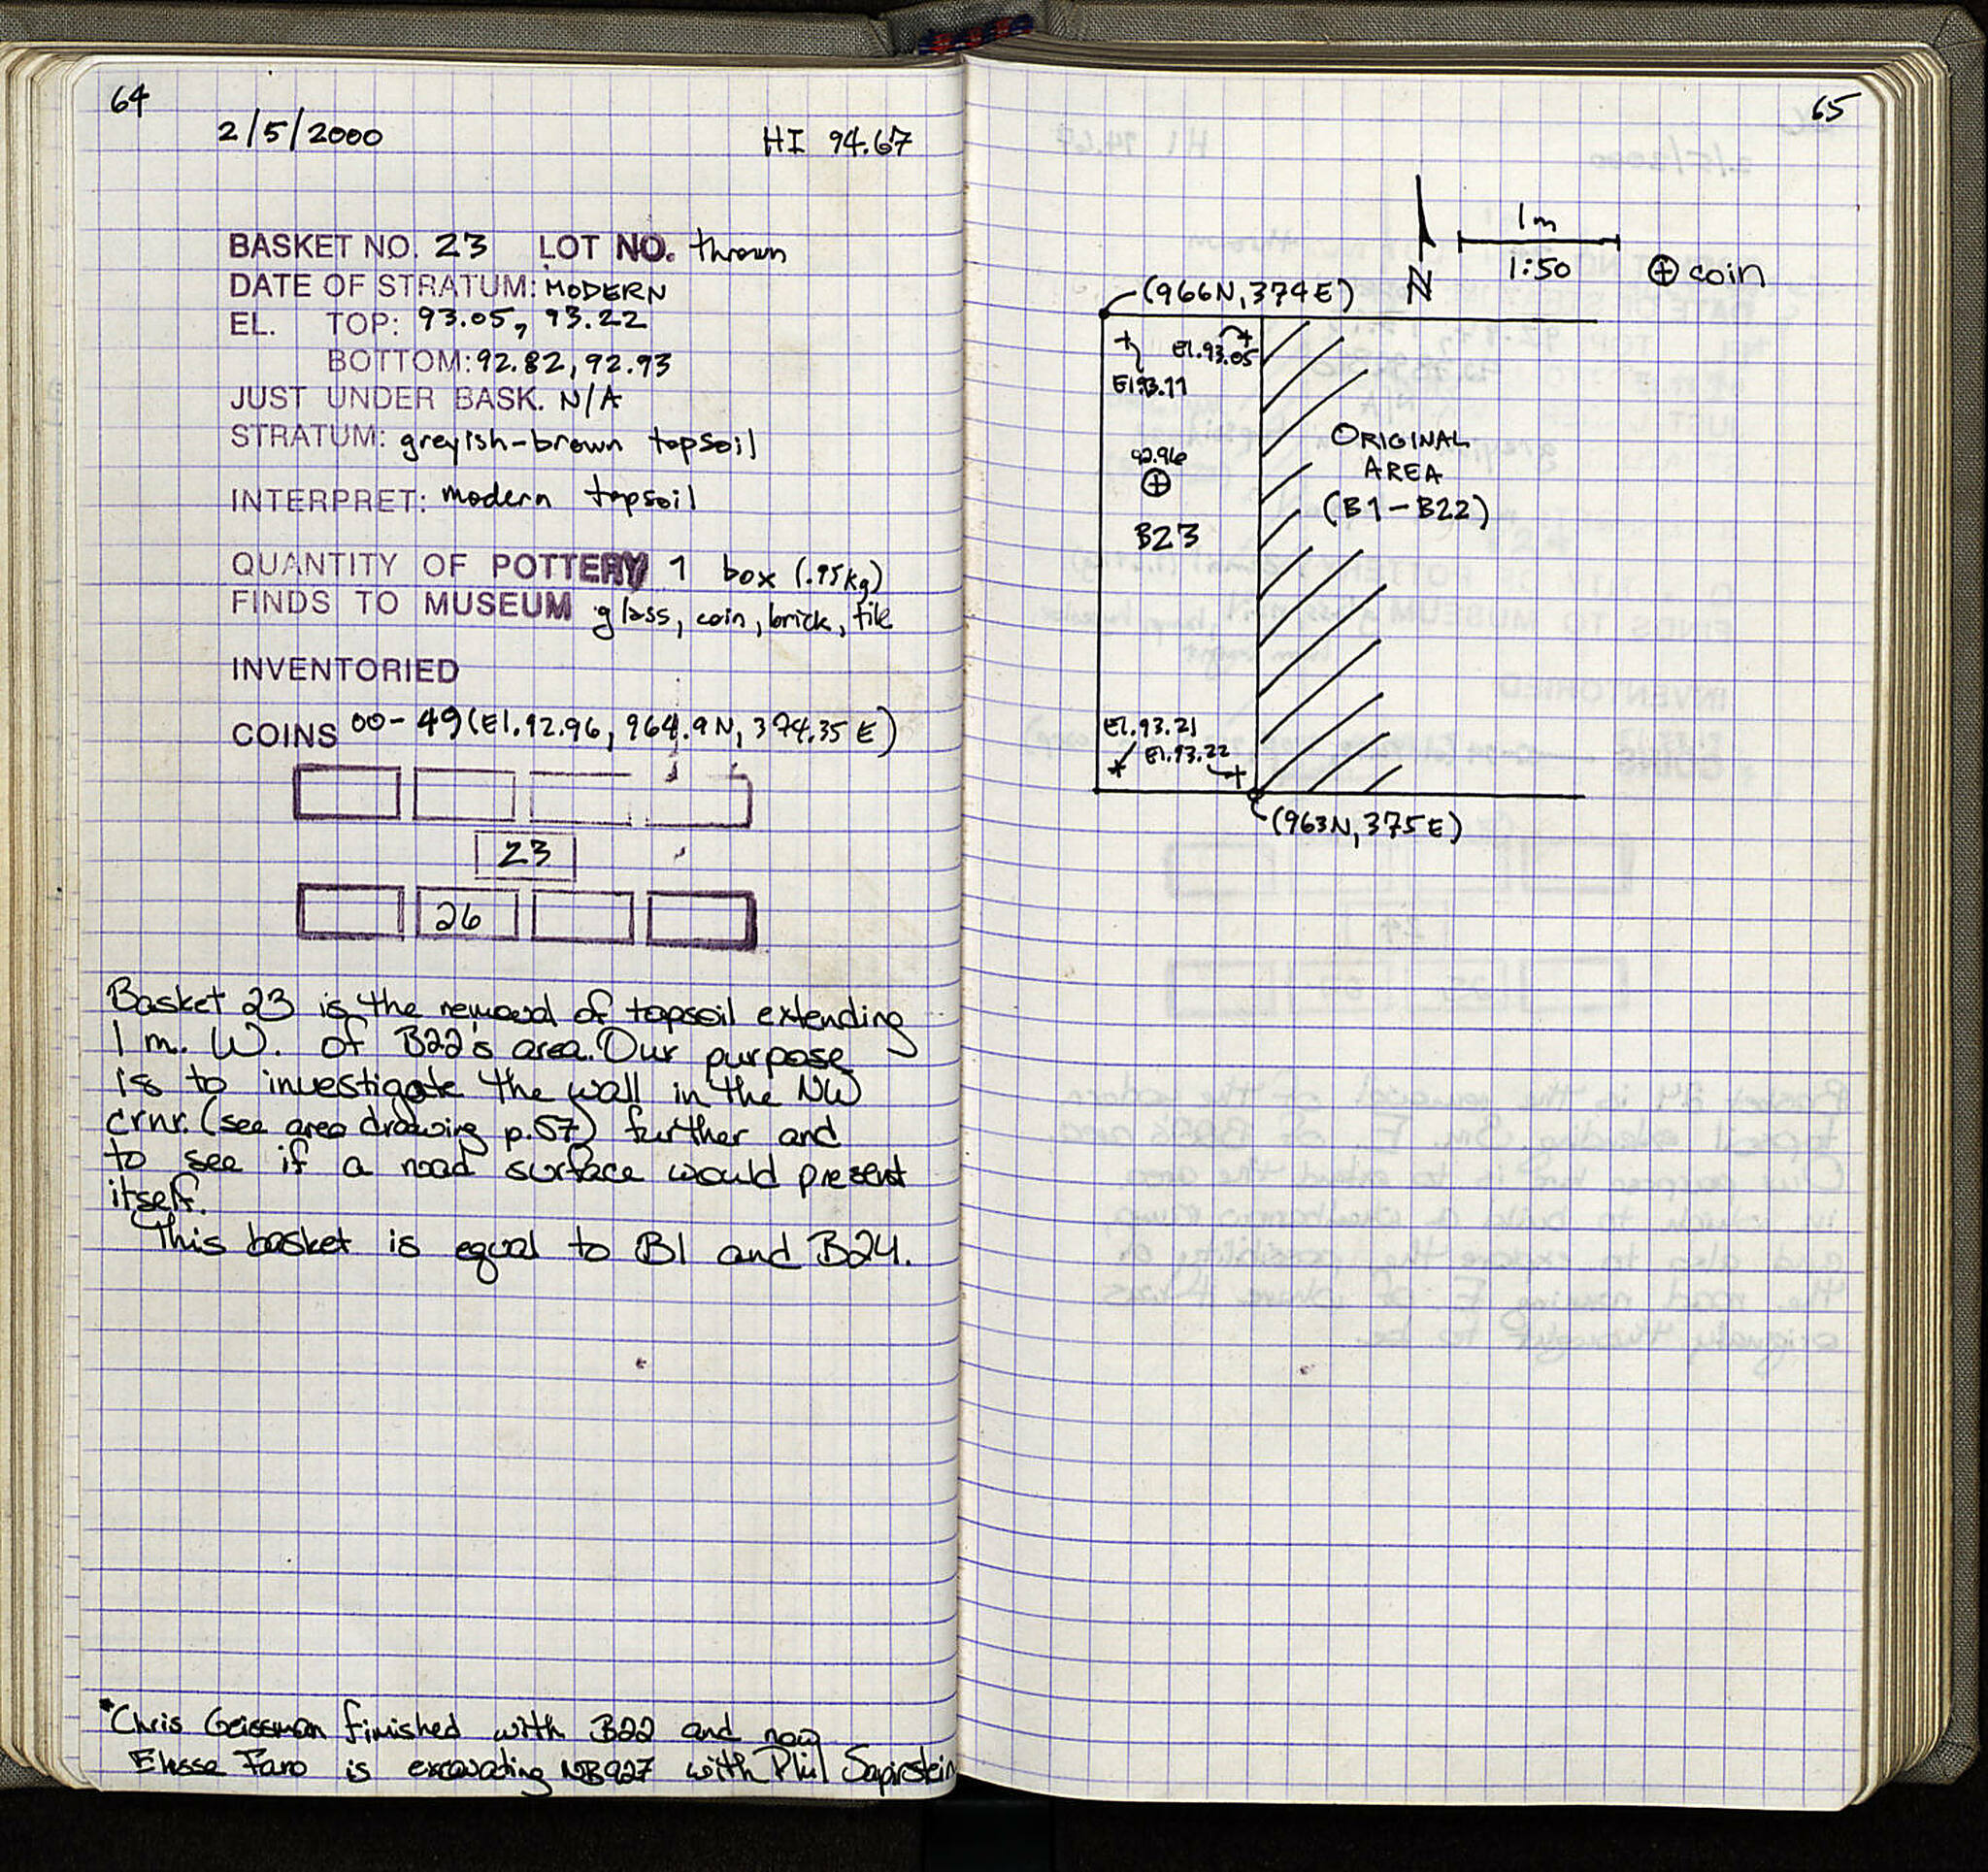 64
2/5/2000 HI 94.67
BASKET NO. 23 LOT NO. thrown
DATE OF STRATUM: MODERN
EL. TOP: 93.05, 93.22
BOTTOM: 92.82, 92.93
JUST UNDER BASK. N/A
STRATUM: greyish-brown topsoil
INTERPRET: modern topsoil
QUANTITY OF POTTERY 1 box (.95kg)
FINDS TO MUSEUM glass, coin, brick, tile
INVENTORIED
COINS 00-49 (El. 92.96, 964.9N, 374.35E)
23
26
Basket 23 is the removal of topsoil extending
1 m. W. of B22's area. Our purpose
is to investigate the wall in the NW
crnr. (see area drawing p.57) further and
to see if a road surface would present
itself.
This basket is equal to B1 and B24.
*Chris Geissman finished with B22 and now
Elissa Faro is excavating NB927 with Phil Sapirstein
65
1m
1:50
N
⊕ coin
(966N, 374E)
El. 93.05
El. 93.11
ORIGINAL
AREA
(B1-B22)
92.96
⊕
B23
El. 93.21
El. 93.22
(963N, 375E)